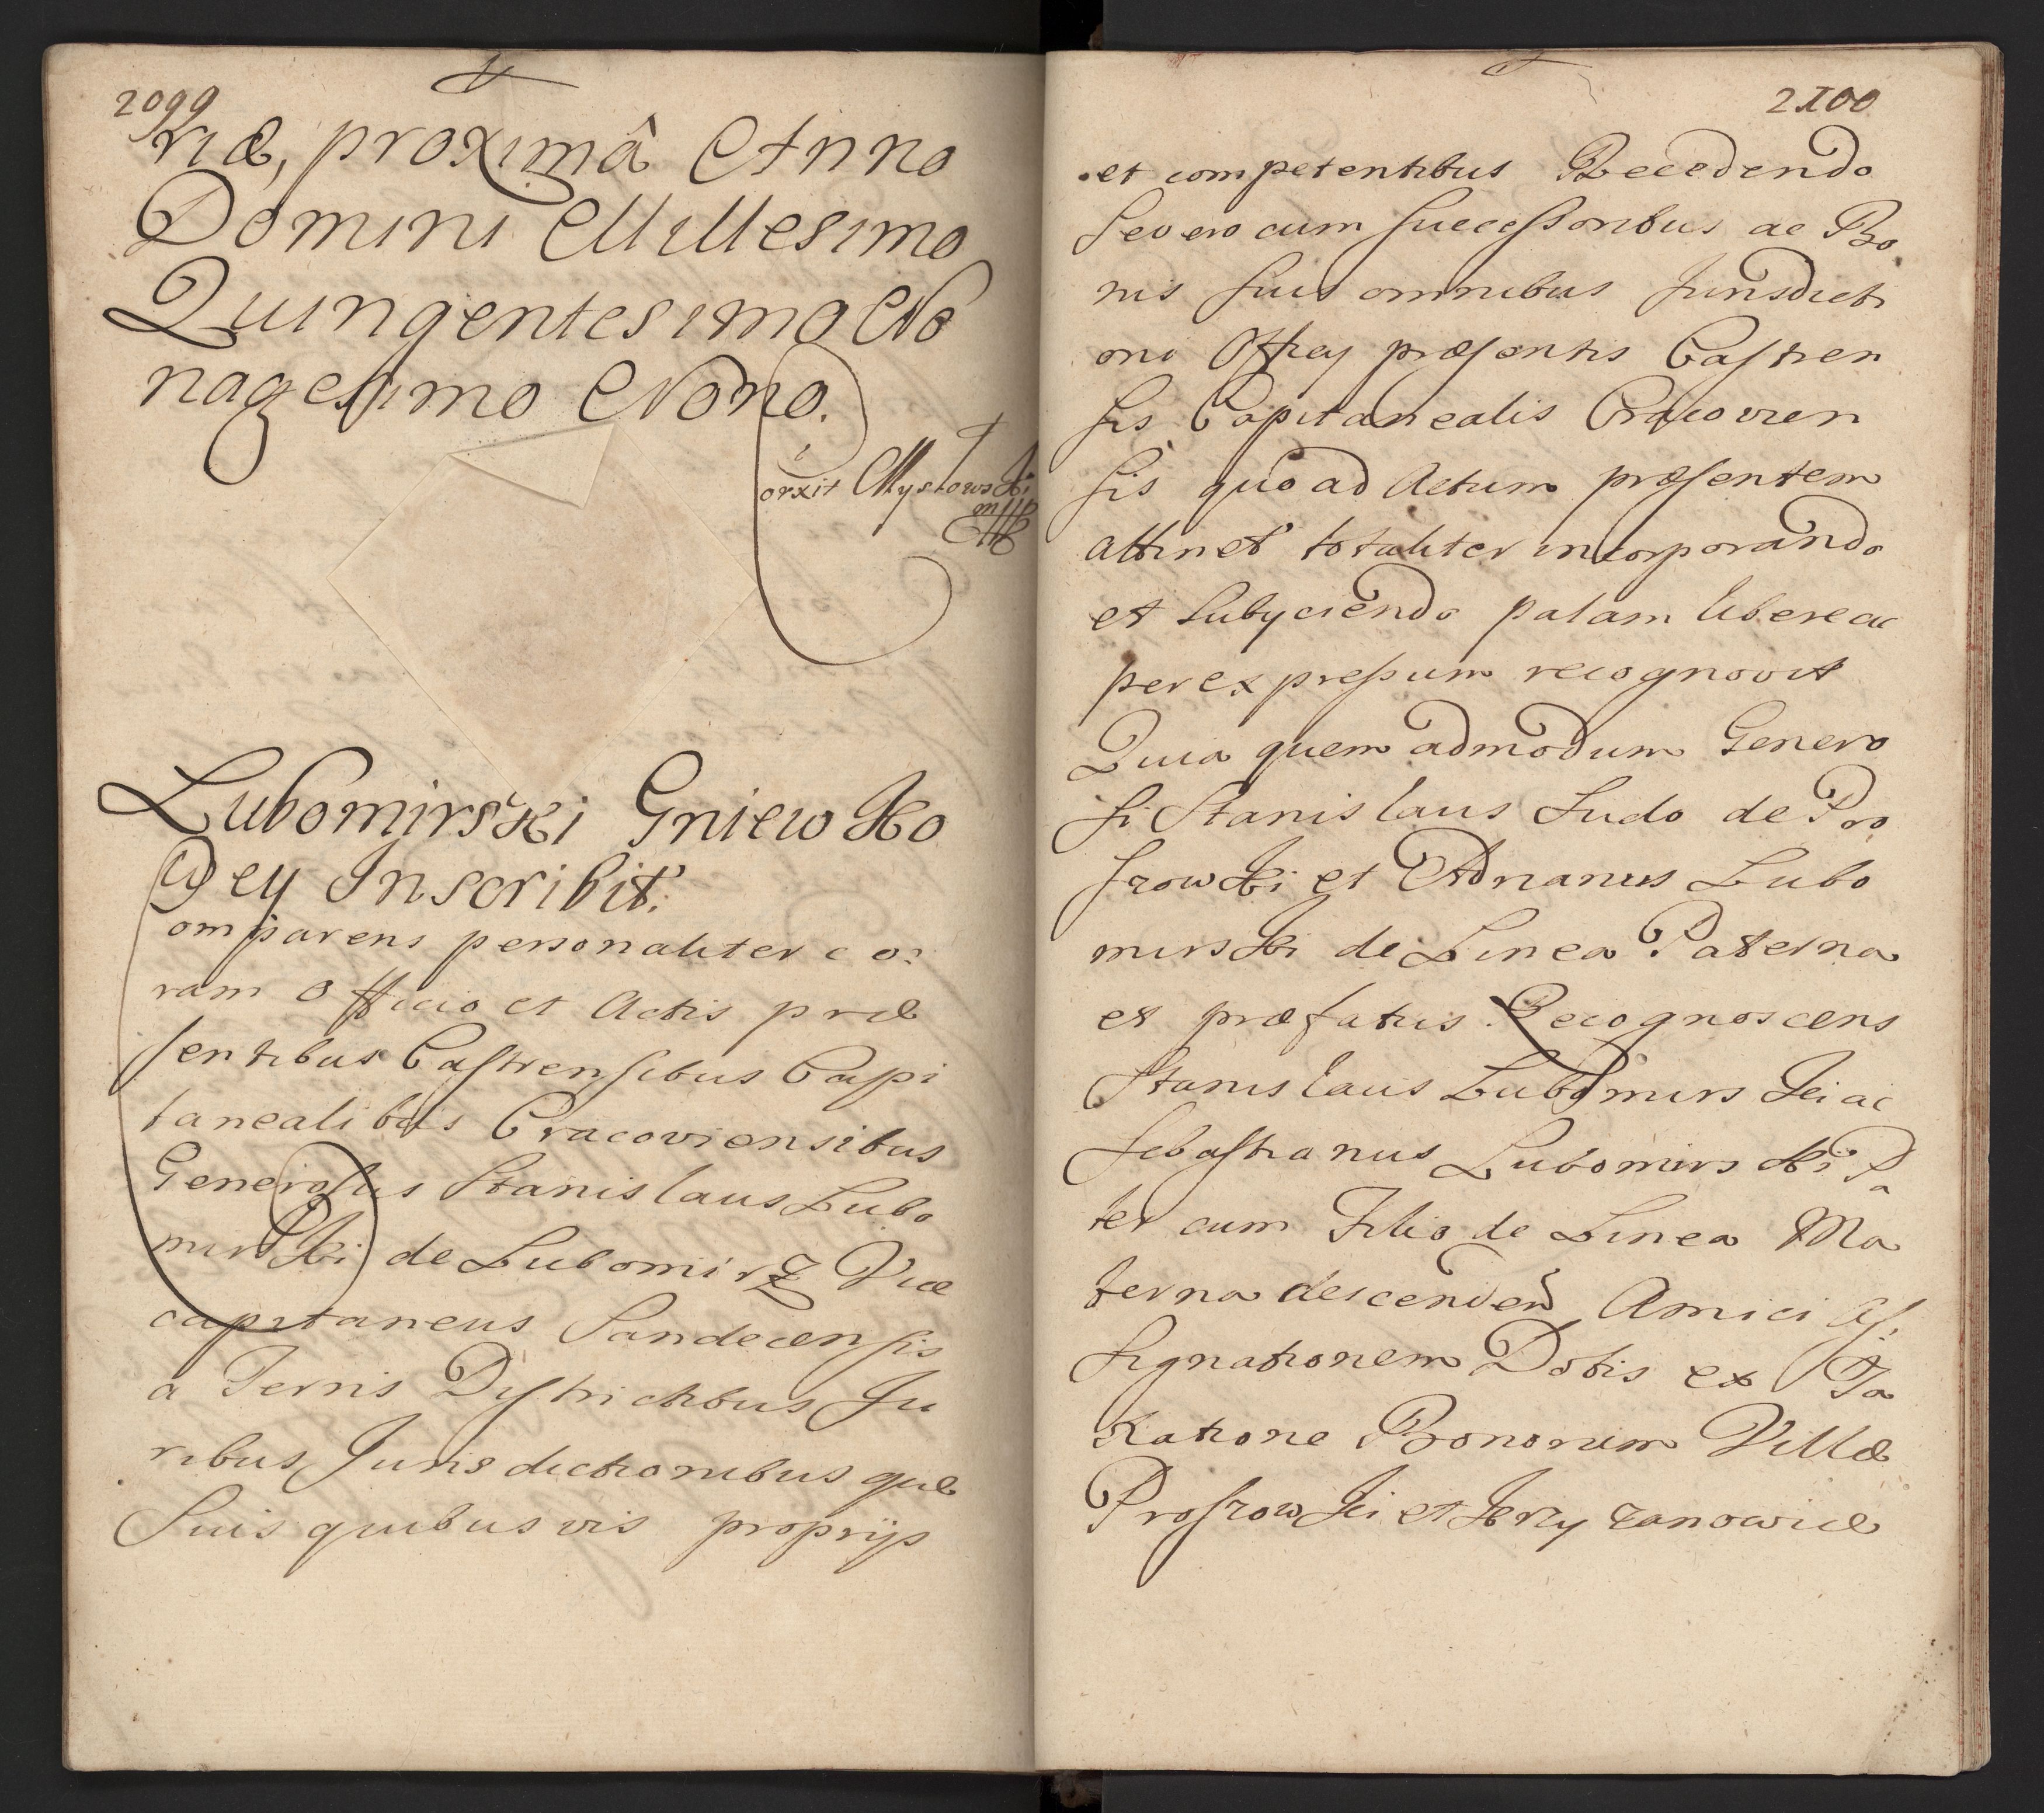 2099
riæ, proximâ Anno
Domini Millesimo
Quingentesimo No
nagesimo Nono.
Lubomirski Gniewko
wey Inscribit.
Comparens personaliter co:
ram Officio et Actis præ
sentibus Castrensibus Capi
tanealibus Cracoviensibus
Generosus Stanislaus Lubo
mirski de Lubomirz Vice
capitaneus Sandecensis
a Terris Districtibus Ju
ribus Jurisdictionibusque
Suis quibusvis proprijs
2100
et competentibus Recedendo
Se vero cum Successoribus ac Bo
nis suis omnibus Jurisdicti
oni Officy præsentis Castren
sis Capitanealis Cracovien
sis quo ad Actum præsentem
attinet totaliter incorporando
et Subyciendo palam libere ac
per expressum recognovit
Quia quem admodum Genero
si Stanislaus Sudo de Pro
szowski et Adrianus Lubo
mirski de Linea Paterna
et præfatus Recognoscens
Stanislaus Lubomirski ac
Sebastianus Lubomirski Pa
ter cum Filio de Linea Ma
terna descenden Amici As
signationem Dotis ex Ta
xatione Bonorum Villæ
Proszowki et Jerzy